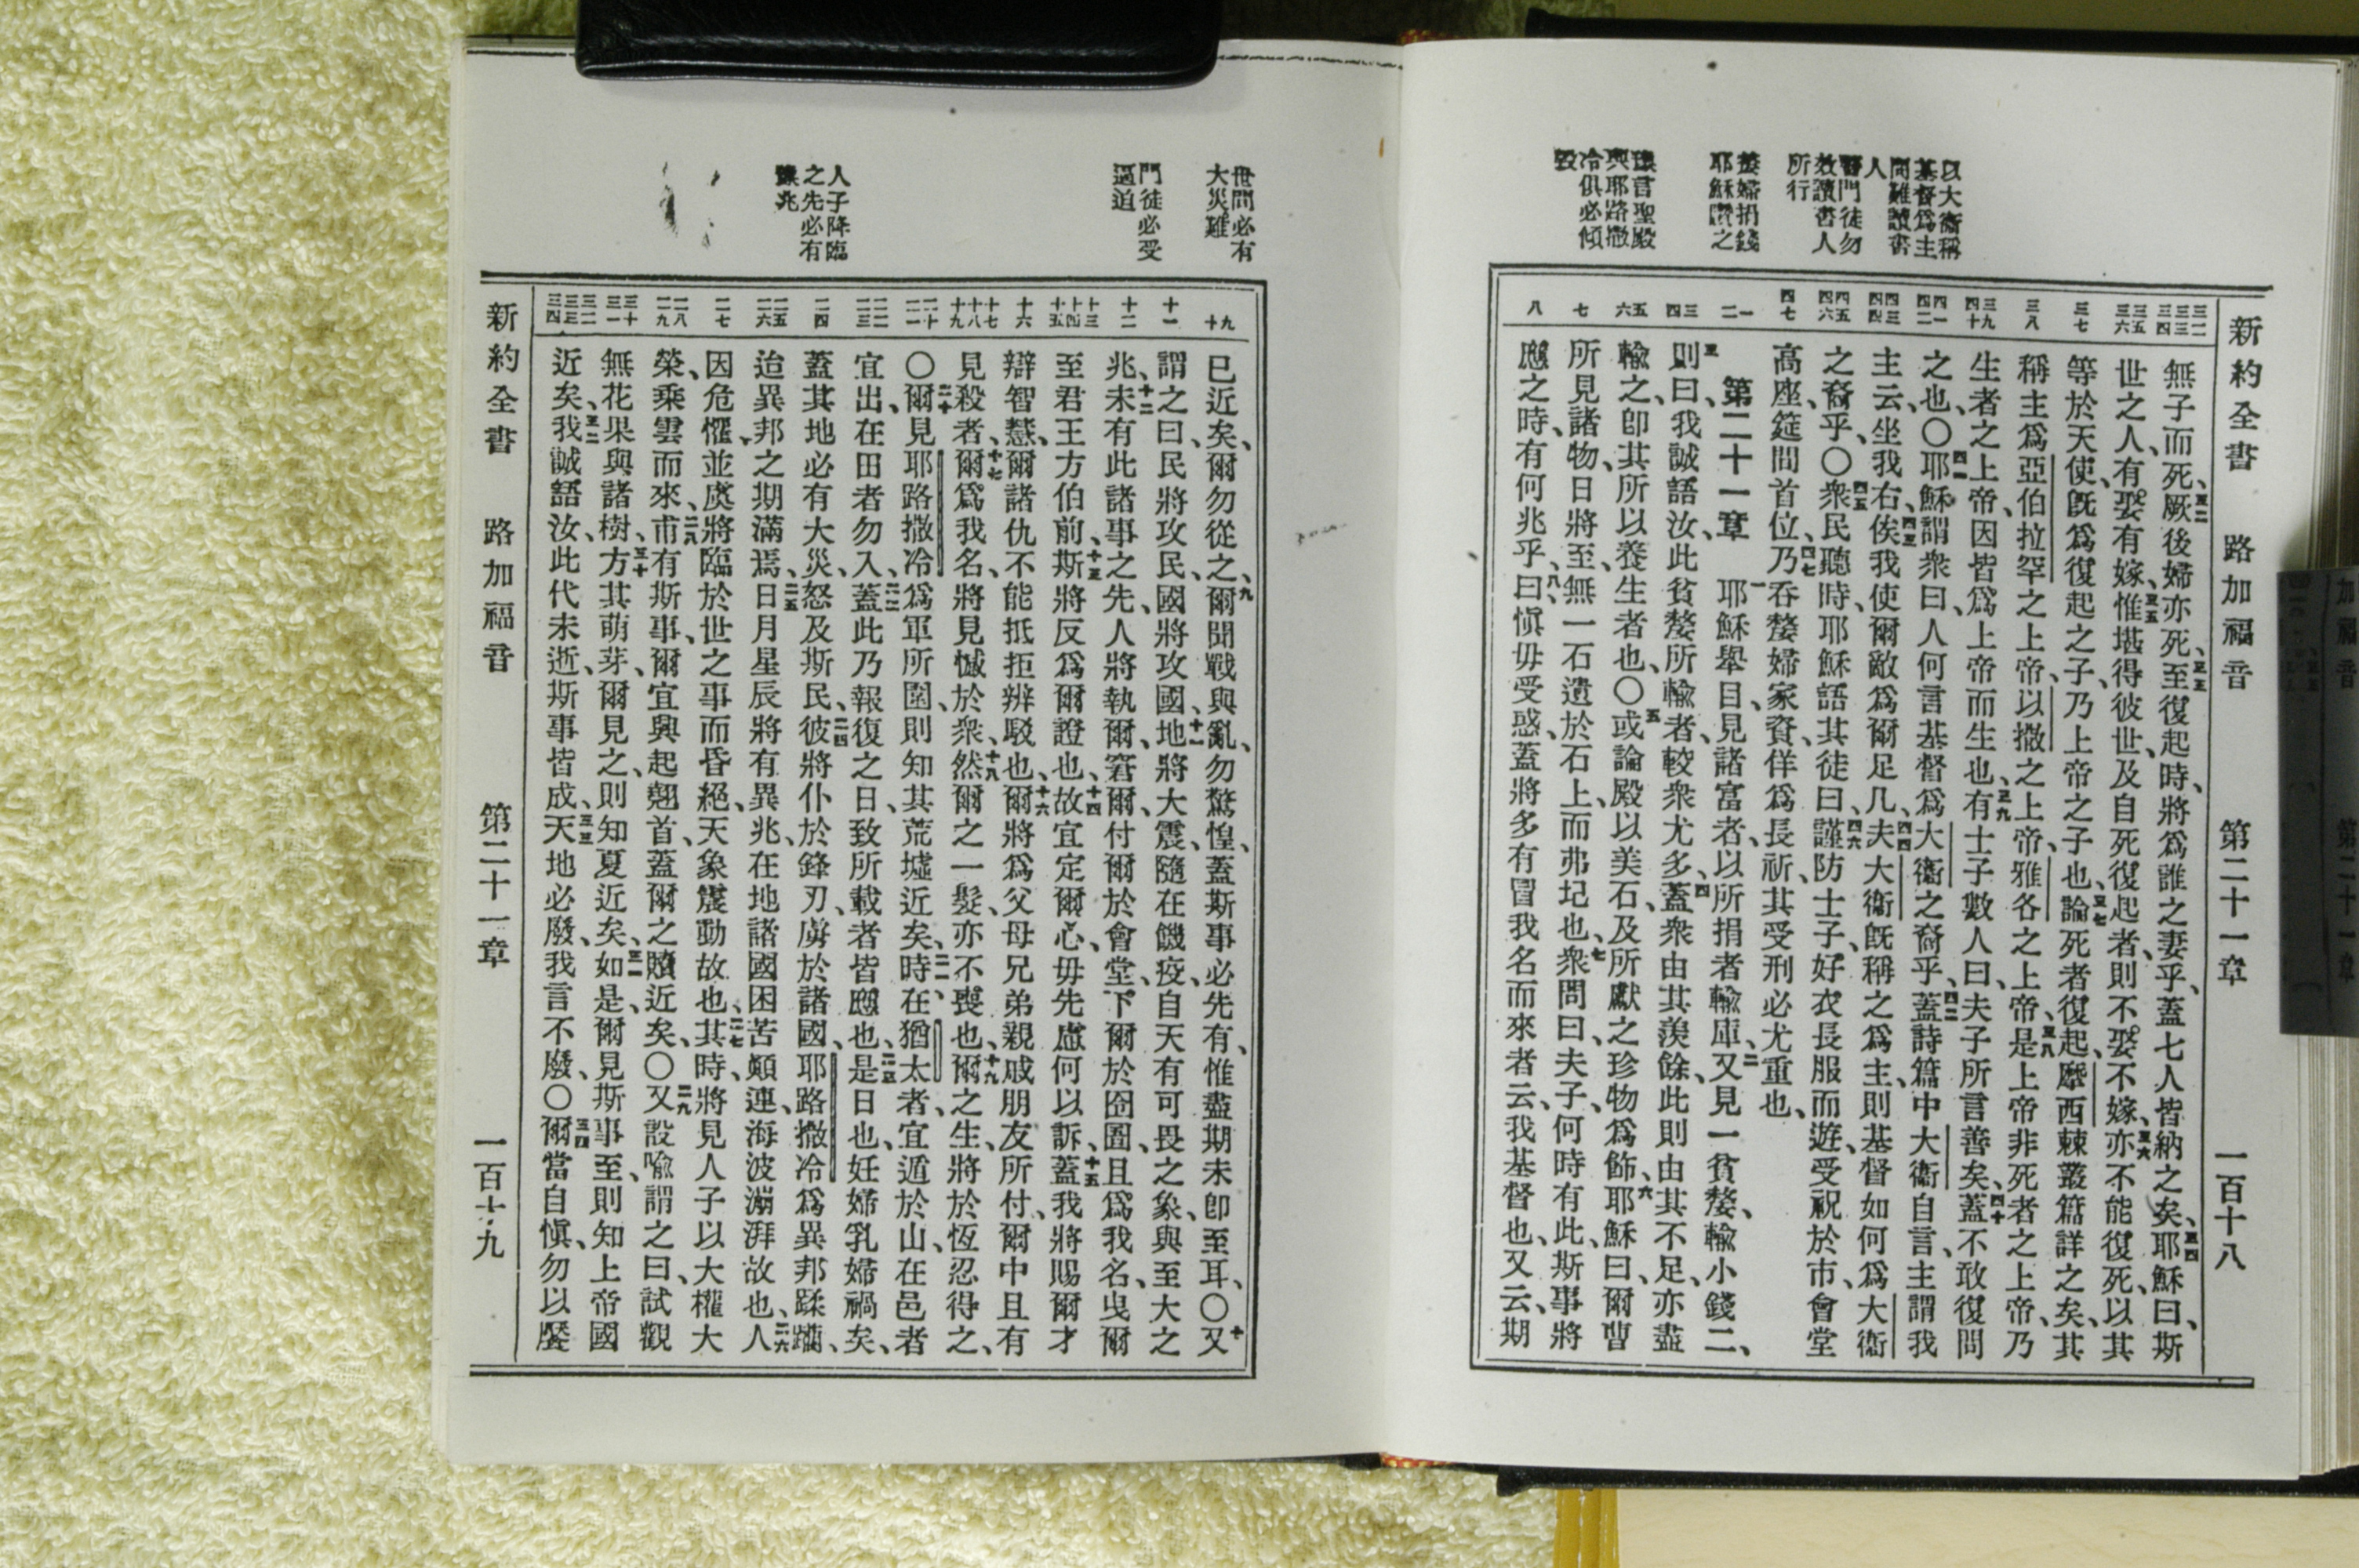 新約全書 路加福音 第二十一章 一百十八
以大衞稱
基督爲主
問難讀書
人
警門徒勿
效讀書人
所行
嫠婦捐錢
耶穌讚之
豫言聖殿
與耶路撒
冷俱必傾
毀
三二 三三 三四
三五 三六
三七
三八
三九 四十
四一 四二
四三 四四
四五 四六
四七
一 二
三 四
五 六
七
八
無子而死、三二厥後婦亦死、三三至復起時、將爲誰之妻乎、蓋七人皆納之矣、三四耶穌曰、斯
世之人、有娶有嫁、三五惟堪得彼世、及自死復起者、則不娶不嫁、三六亦不能復死、以其
等於天使、旣爲復起之子、乃上帝之子也、三七論死者復起、摩西棘叢篇詳之矣、其
稱主爲亞伯拉罕之上帝、以撒之上帝、雅各之上帝、三八是上帝非死者之上帝、乃
生者之上帝、因皆爲上帝而生也、三九有士子數人曰、夫子所言善矣、四十蓋不敢復問
之也、〇四一耶穌謂衆曰、人何言基督爲大衞之裔乎、四二蓋詩篇中大衞自言、主謂我
主云、坐我右、四三俟我使爾敵爲爾足几、四四夫大衞旣稱之爲主、則基督如何爲大衞
之裔乎、〇四五衆民聽時、耶穌語其徒曰、四六謹防士子、好衣長服而遊、受祝於市、會堂
高座、筵間首位、四七乃吞嫠婦家資、佯爲長祈、其受刑必尤重也、
第二十一章 一耶穌舉目、見諸富者、以所捐者輸庫、二又見一貧嫠、輸小錢二、
三則曰、我誠語汝、此貧嫠所輸者、較衆尤多、四蓋衆由其羨餘、此則由其不足、亦盡
輸之、卽其所以養生者也、〇五或論殿以美石、及所獻之珍物爲飾、六耶穌曰、爾曹
所見諸物、日將至、無一石遺於石上、而弗圮也、七衆問曰、夫子、何時有此、斯事將
應之時、有何兆乎、八曰、愼毋受惑、蓋將多有冒我名而來者云、我基督也、又云、期
世間必有
大災難
門徒必受
逼迫
人子降臨
之先必有
豫兆
九 十
十一
十二
十三 十四 十五
十六
十七 十八 十九
二十 二一
二二 二三
二四
二五 二六
二七
二八 二九
三十 三一
三二 三三 三四
已近矣、爾勿從之、九爾聞戰與亂、勿驚惶、蓋斯事必先有、惟盡期未卽至耳、〇十又
謂之曰、民將攻民、國將攻國、十一地將大震、隨在饑疫、自天有可畏之象、與至大之
兆、十二未有此諸事之先、人將執爾、窘爾、付爾於會堂、下爾於囹圄、且爲我名、曳爾
至君王方伯前、十三斯將反爲爾證也、十四故宜定爾心、毋先慮何以訴、十五蓋我將賜爾才
辯智慧、爾諸仇不能抵拒辨駁也、十六爾將爲父母兄弟親戚朋友所付、爾中且有
見殺者、十七爾爲我名、將見憾於衆、十八然爾之一髮、亦不喪也、十九爾之生、將於恆忍得之、
〇二十爾見耶路撒冷、爲軍所圍、則知其荒墟近矣、二一時在猶太者、宜遁於山、在邑者
宜出、在田者勿入、二二蓋此乃報復之日、致所載者皆應也、二三是日也、妊婦乳婦禍矣、
蓋其地必有大災、怒及斯民、二四彼將仆於鋒刃、虜於諸國、耶路撒冷爲異邦蹂躪、
迨異邦之期滿焉、二五日月星辰將有異兆、在地諸國困苦顛連、海波漰湃故也、二六人
因危懼、並虞將臨於世之事而昏絕、天象震動故也、二七其時、將見人子以大權大
榮、乘雲而來、二八甫有斯事、爾宜興起翹首、蓋爾之贖近矣、〇二九又設喩謂之曰、試觀
無花果與諸樹、三十方其萌芽、爾見之、則知夏近矣、三一如是、爾見斯事至、則知上帝國
近矣、三二我誠語汝、此代未逝、斯事皆成、三三天地必廢、我言不廢、〇三四爾當自愼、勿以饜
新約全書 路加福音 第二十一章 一百十九
加福音 第二十一章